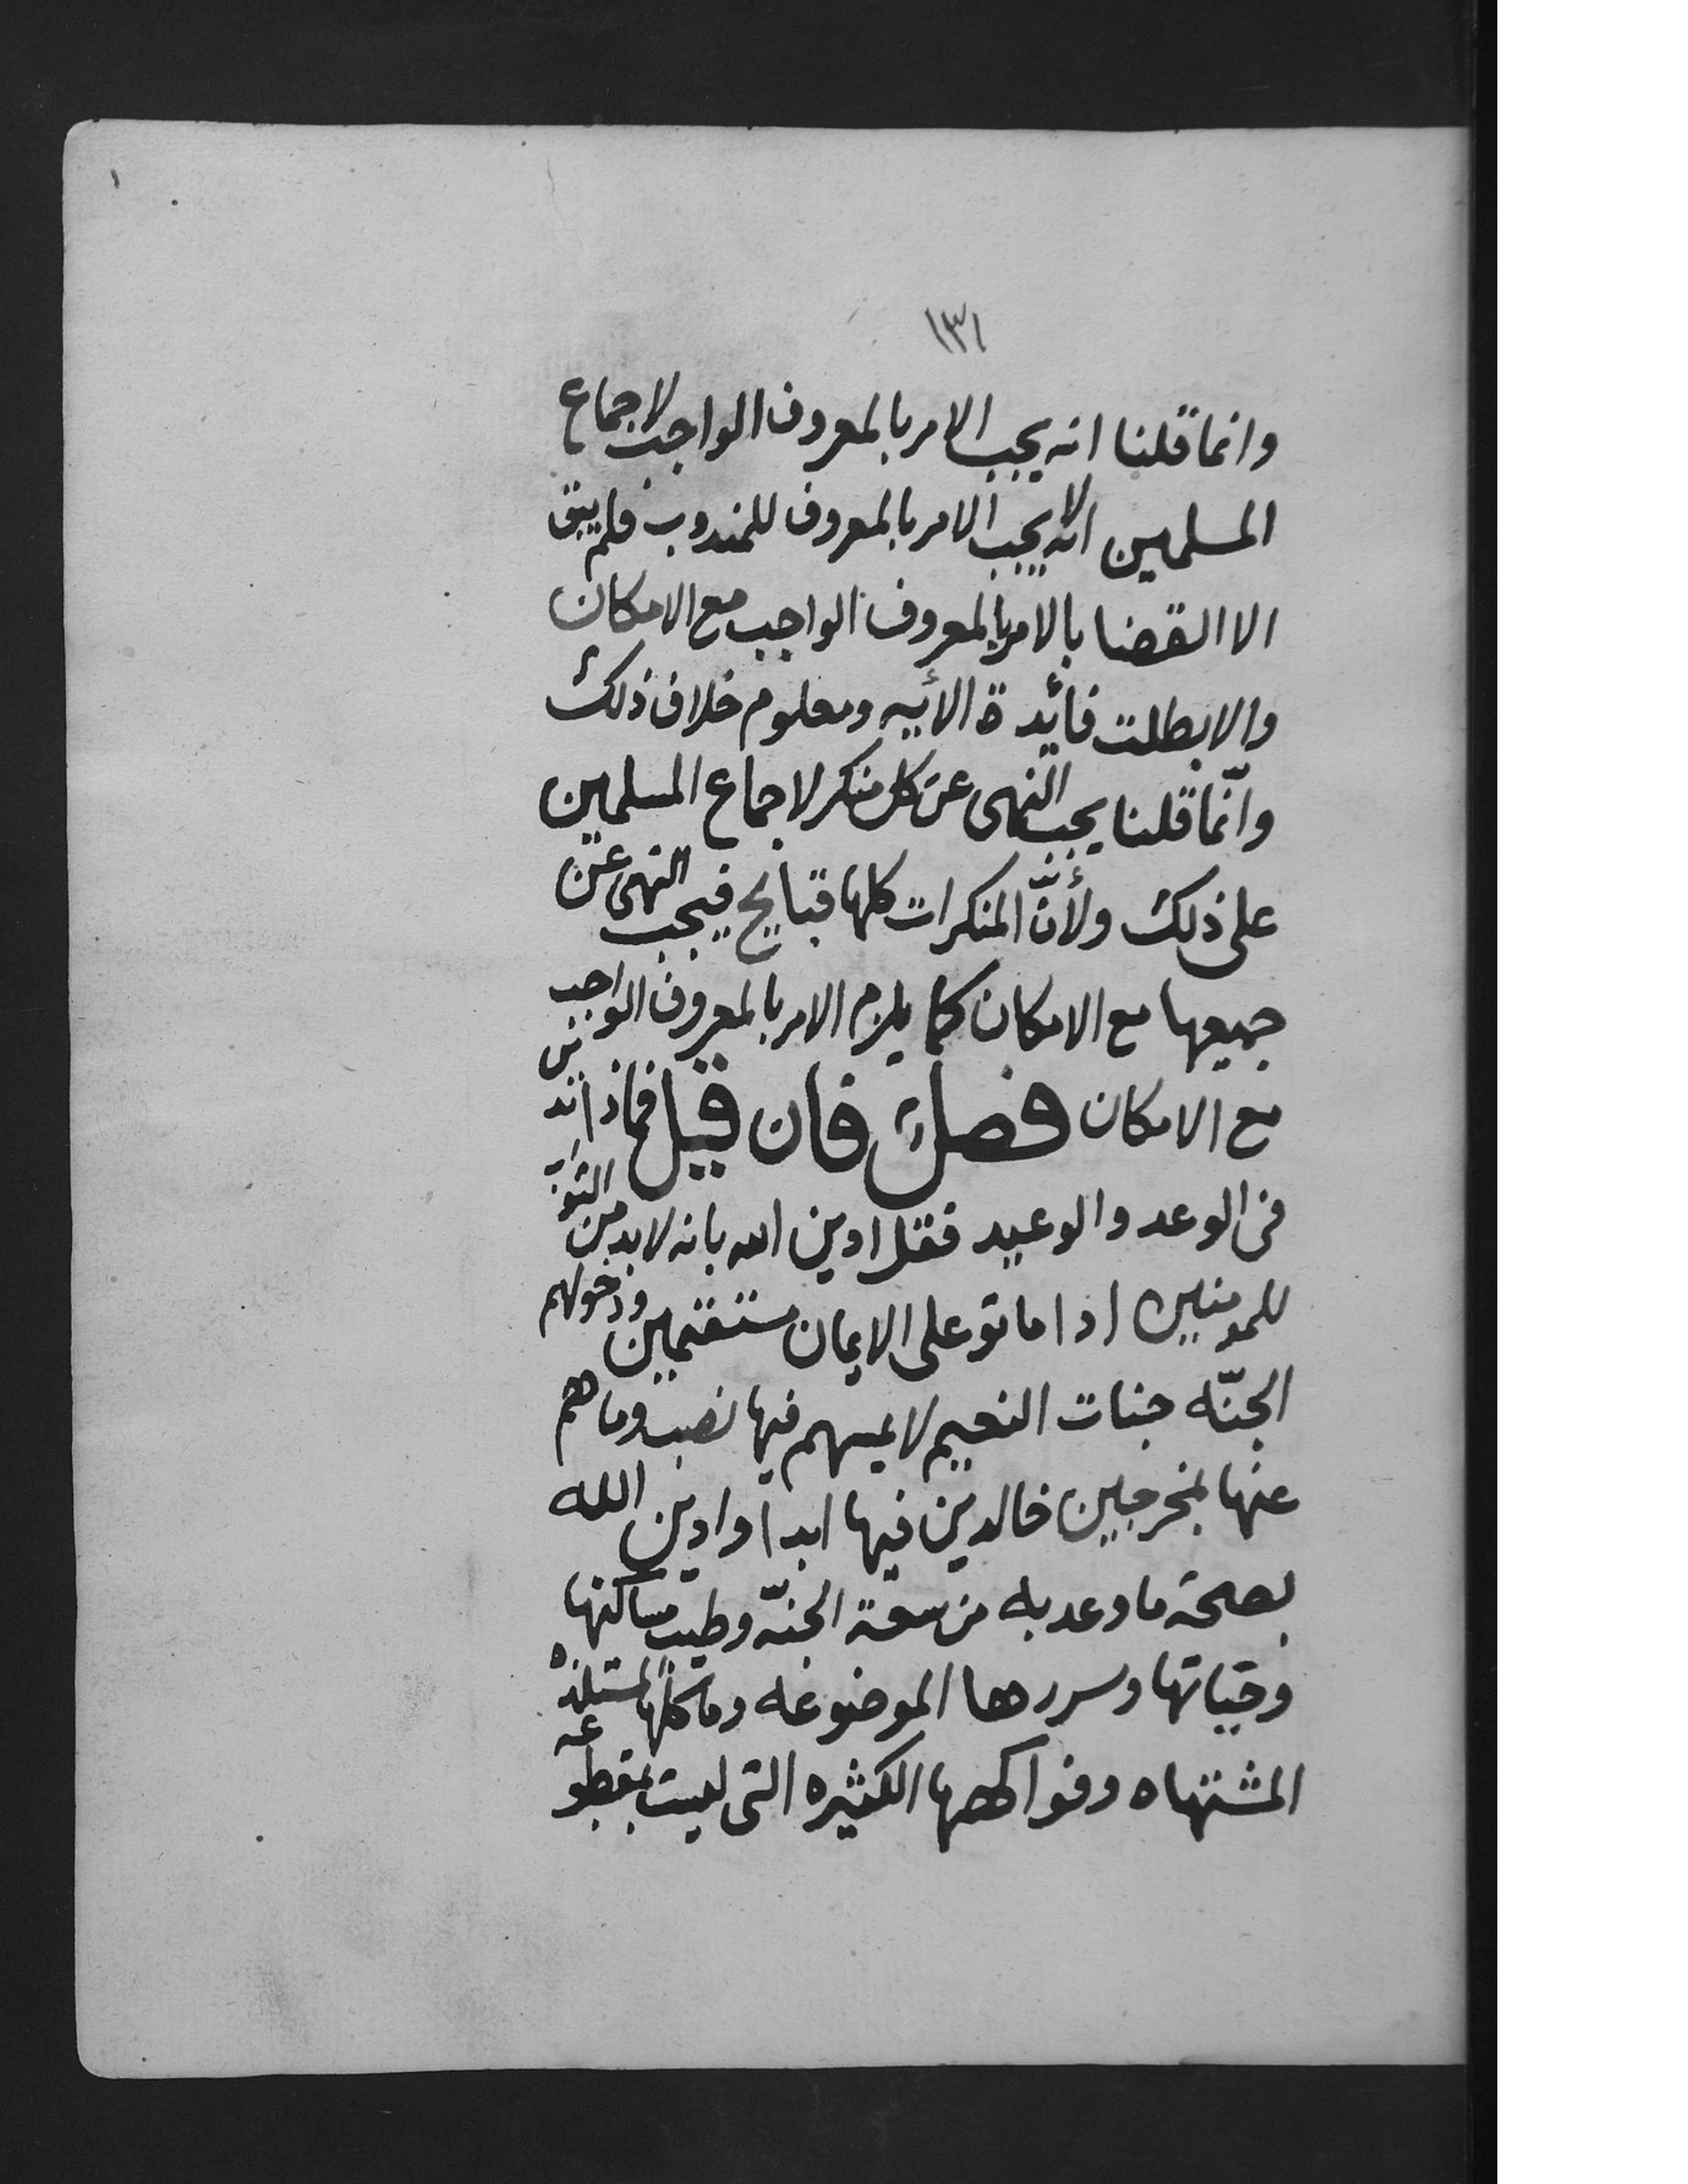 ١٣١
وانما قلنا انه يجب الامر بالمعروف الواجب لاجماع
المسلمين انه لا يجب الامر بالمعروف للمندوب فلم يبق
الا القضا بالامر بالمعروف الواجب مع الامكان
والا بطلت فائدة الأيه ومعلوم خلاف ذلك
وانّما قلنا يجب النهى عن كل منكر لاجماع المسلمين
على ذلك ولأنّ المنكرات كلها قبايح فيجب النهى عن
جميعها مع الامكان كما يلزم الامر بالمعروف الواجب
مع الامكان فصل فان قيل فماذا تدين
فى الوعد والوعيد فقل ادين الله بانه لابد من الثواب
للمومنين اذا ماتو على الايمان مستقيمين ودخولهم
الجنّه جنات النعيم لا يمسهم فيها نصب وما هم
عنها بمخرجين خالدين فيها ابدا وادين الله
بصحة ما وعد به من سعة الجنّه وطيب مساكنها
وجناتها وسررها الموضوعه وماكلها المستلذه
المشتهاه وفواكهها الكثيره التى ليست بمقطوعه